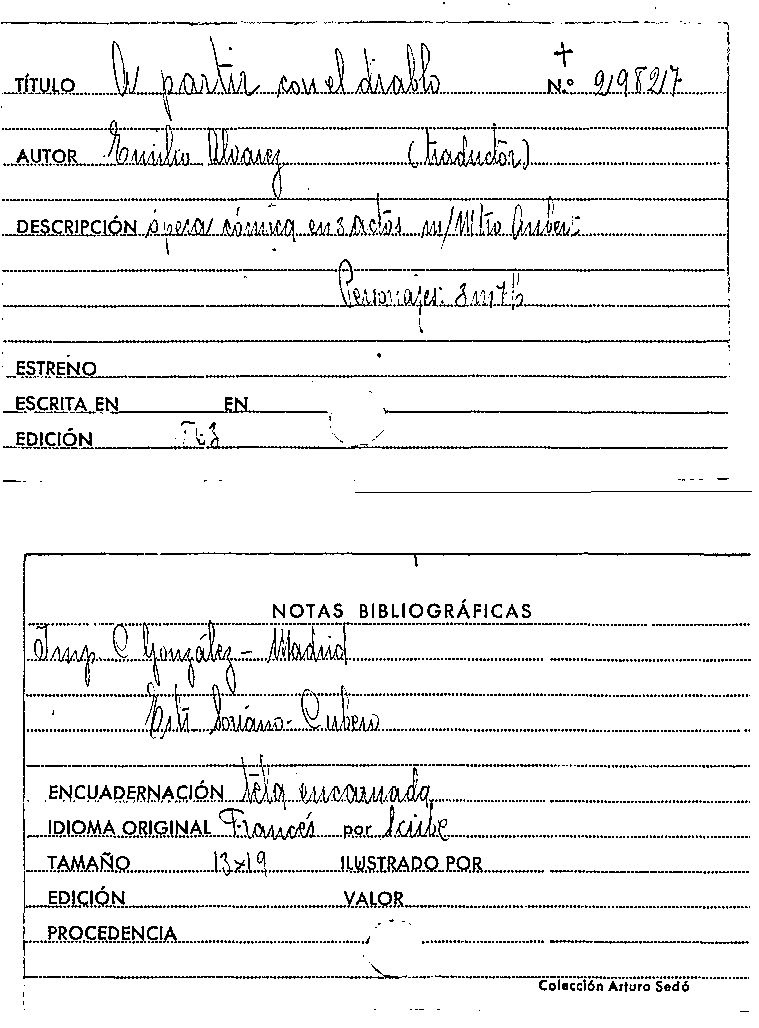 TÍTULO A partir con el diablo + N.º 29827
AUTOR Emilio Alvarez (traductor)
DESCRIPCIÓN ópera cómica en 3 actos m/ Mtro Auber
Personajes: 3 m 7 h
ESTRENO
ESCRITA EN EN
EDICIÓN
NOTAS BIBLIOGRÁFICAS
Imp C González - Madrid
Soriano - Cubero
ENCUADERNACIÓN tela encarnada
IDIOMA ORIGINAL Francés por Scribe
TAMAÑO 13x19 ILUSTRADO POR
EDICIÓN VALOR
PROCEDENCIA
Colección Arturo Sedó